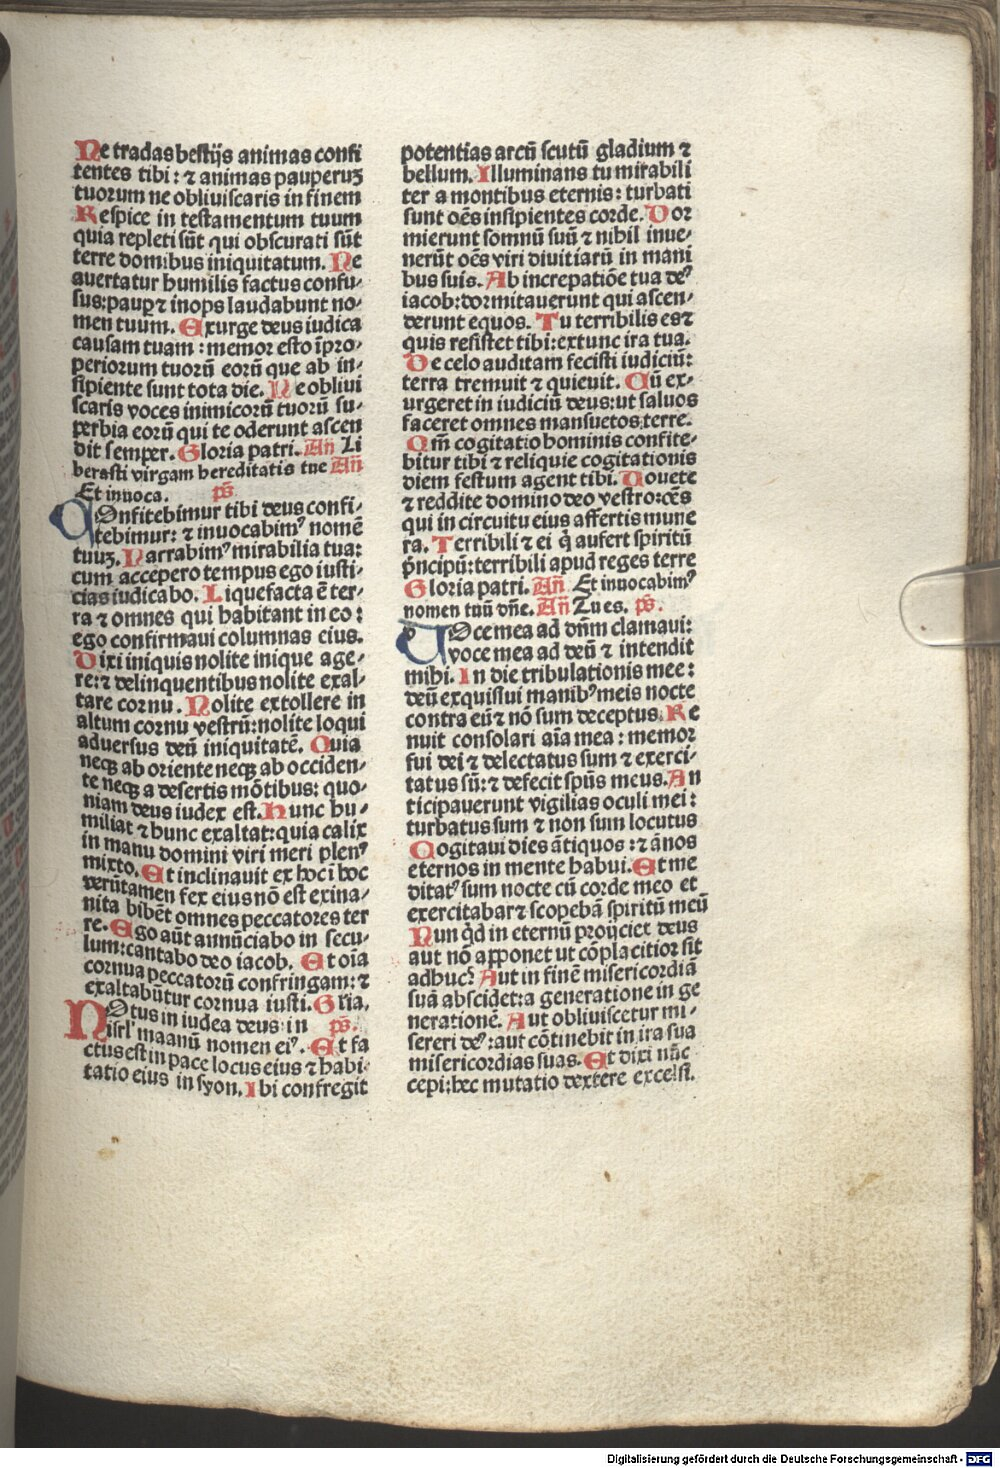 Ne tradas bestijs animas confi
tentes tibi: ⁊ animas pauperuꝫ
tuorum ne obliuiscaris in finem
Respice in testamentum tuum
quia repleti sūt qui obscurati sūt
terre domibus iniquitatum. Ne
auertatur humilis factus confu⸗
sus: pauꝑ ⁊ inops laudabunt no⸗
men tuum. Exurge deus iudica
causam tuam: memor esto īpro⸗
periorum tuorū eorū que ab in⸗
sipiente sunt tota die. Ne obliui
scaris voces inimicorū tuorū su⸗
perbia eorū qui te oderunt ascen
dit semper. Gloria patri. Añ Li
berasti virgam hereditatis tue Añ
Et inuoca. p̄s
COnfitebimur tibi deus confi⸗
tebimur: ⁊ inuocabimꝰ nomē
tuuꝫ. Narrabimꝰ mirabilia tua:
cum accepero tempus ego iusti⸗
cias iudicabo. Liquefacta ē ter⸗
ra ⁊ omnes qui habitant in eo:
ego confirmaui columnas eius.
Dixi iniquis nolite inique age⸗
re: ⁊ delinquentibus nolite exal⸗
tare cornu. Nolite extollere in
altum cornu vestrū: nolite loqui
aduersus deū iniquitatē. Quia
neqꝫ ab oriente neqꝫ ab occiden⸗
te neqꝫ a desertis mōtibus: quo⸗
niam deus iudex est. Hunc hu⸗
miliat ⁊ hunc exaltat: quia calix
in manu domini viri meri plenꝰ
mixto. Et inclinauit ex hoc ī hoc
verūtamen fex eius nō est exina⸗
nita bibēt omnes peccatores ter
re. Ego aūt annūciabo in secu⸗
lum: cantabo deo iacob. Et oīa
cornua peccatorū confringam: ⁊
exaltabūtur cornua iusti. Gl̄ia.
NOtus in iudea deus: in p̄s.
isrl' maanū nomen eiꝰ. Et fa
ctus est in pace locus eius ⁊ habi⸗
tatio eius in syon. Ibi confregit
potentias arcū scutū gladium ⁊
bellum. Illuminans tu mirabili
ter a montibus eternis: turbati
sunt oēs insipientes corde. Dor
mierunt somnū suū ⁊ nihil inue⸗
nerūt oēs viri diuitiarū in mani
bus suis. Ab increpatiōe tua deꝰ
iacob: dormitauerunt qui ascen⸗
derunt equos. Tu terribilis es ⁊
quis resistet tibi: ex tunc ira tua.
De celo auditam fecisti iudiciū:
terra tremuit ⁊ quieuit. Cū ex⸗
urgeret in iudiciū deus: ut saluos
faceret omnes mansuetos terre.
Qm̄ cogitatio hominis confite⸗
bitur tibi ⁊ reliquie cogitationis
diem festum agent tibi. Vouete
⁊ reddite domino deo vestro: oēs
qui in circuitu eius affertis mune
ra. Terribili ⁊ ei q̇ aufert spiritū
p̄ncipū: terribili apud reges terre
Gloria patri. Añ Et inuocabimꝰ
nomen tuū dñe. Añ Tu es. p̄s.
VOce mea ad dñm clamaui:
voce mea ad deū ⁊ intendit
mihi. In die tribulationis mee:
deū exquisiui manibꝰ meis nocte
contra eū ⁊ nō sum deceptus. Re
nuit consolari aīa mea: memor
fui dei ⁊ delectatus sum ⁊ exerci⸗
tatus sū: ⁊ defecit sp̄us meus. An
ticipauerunt vigilias oculi mei:
turbatus sum ⁊ non sum locutus
Cogitaui dies ātiquos: ⁊ ānos
eternos in mente habui. Et me
ditatꝰ sum nocte cū corde meo et
exercitabar ⁊ scopebā spiritū meū
Nunq̇d in eternū proijciet deus
aut nō apponet ut cōplacitior sit
adhuc? Aut in finē misericordiā
suā abscidet: a generatione in ge
nerationē. Aut obliuiscetur mi⸗
sereri deꝰ: aut cōtinebit in ira sua
misericordias suas. Et dixi nūc
cepi: hec mutatio dextere excelsi.
Digitalisierung gefördert durch die Deutsche Forschungsgemeinschaft - DFG